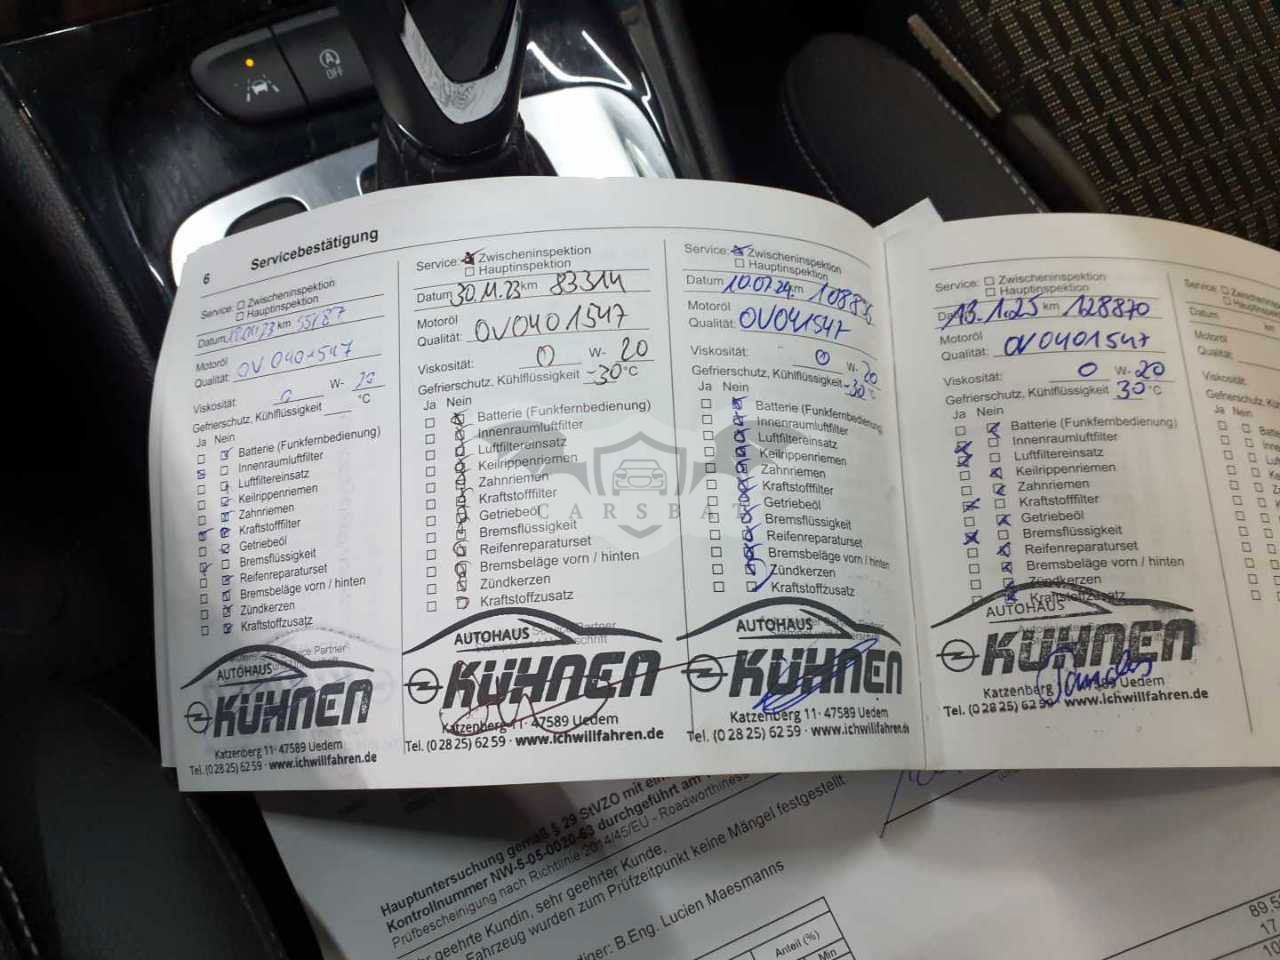 OFF
6 Servicebestätigung
Service: Zwischeninspektion
Hauptinspektion
Datum km 55187
Motoröl
Qualität: OV 0401547
Viskosität: 0 W- 20
Gefrierschutz, Kühlflüssigkeit °C
Ja Nein
Batterie (Funkfernbedienung)
Innenraumluftfilter
Luftfiltereinsatz
Keilrippenriemen
Zahnriemen
Kraftstofffilter
Getriebeöl
Bremsflüssigkeit
Reifenreparaturset
Bremsbeläge vorn / hinten
Zündkerzen
Kraftstoffzusatz
Service Partner
AUTOHAUS
KÜHNEN
Katzenberg 11 · 47589 Uedem
Tel. (0 28 25) 62 59 · www.ichwillfahren.de
Service: Zwischeninspektion
Hauptinspektion
Datum 30.11.23 km 83314
Motoröl
Qualität: OV0401547
Viskosität: 0 W- 20
Gefrierschutz, Kühlflüssigkeit -30 °C
Ja Nein
Batterie (Funkfernbedienung)
Innenraumluftfilter
Luftfiltereinsatz
Keilrippenriemen
Zahnriemen
Kraftstofffilter
Getriebeöl
Bremsflüssigkeit
Reifenreparaturset
Bremsbeläge vorn / hinten
Zündkerzen
Kraftstoffzusatz
AUTOHAUS
KÜHNEN
Katzenberg 11 · 47589 Uedem
Tel. (0 28 25) 62 59 · www.ichwillfahren.de
Service: Zwischeninspektion
Hauptinspektion
Datum 10.07.24. km
Motoröl
Qualität: OV041547
Viskosität: 0 W- 20
Gefrierschutz, Kühlflüssigkeit -30 °C
Ja Nein
Batterie (Funkfernbedienung)
Innenraumluftfilter
Luftfiltereinsatz
Keilrippenriemen
Zahnriemen
Kraftstofffilter
Getriebeöl
Bremsflüssigkeit
Reifenreparaturset
Bremsbeläge vorn / hinten
Zündkerzen
Kraftstoffzusatz
AUTOHAUS
KÜHNEN
Katzenberg 11 · 47589 Uedem
Tel. (0 28 25) 62 59 · www.ichwillfahren.de
Service: Zwischeninspektion
Hauptinspektion
13.1.25 km 128870
Motoröl
Qualität: OV0401547
Viskosität: 0 W- 20
Gefrierschutz, Kühlflüssigkeit -30 °C
Ja Nein
Batterie (Funkfernbedienung)
Innenraumluftfilter
Luftfiltereinsatz
Keilrippenriemen
Zahnriemen
Kraftstofffilter
Getriebeöl
Bremsflüssigkeit
Reifenreparaturset
Bremsbeläge vorn / hinten
Zündkerzen
Kraftstoffzusatz
AUTOHAUS
KÜHNEN
Katzenberg
Tel. (0 28 25) 62 59 · www.ichwillfahren.de
Service:
Datum
Motoröl
Qualität:
Viskosität:
Ja Nein
CARSBAT
Hauptuntersuchung gemäß § 29 StVZO mit
Kontrollnummer NW-5-05-0020-63 durchgeführt am
Prüfbescheinigung nach Richtlinie 2014/45/EU - Roadworthiness
geehrte Kundin, sehr geehrter Kunde,
Fahrzeug wurden zum Prüfzeitpunkt keine Mängel festgestellt
B.Eng. Lucien Maesmanns
Anteil (%)
Min